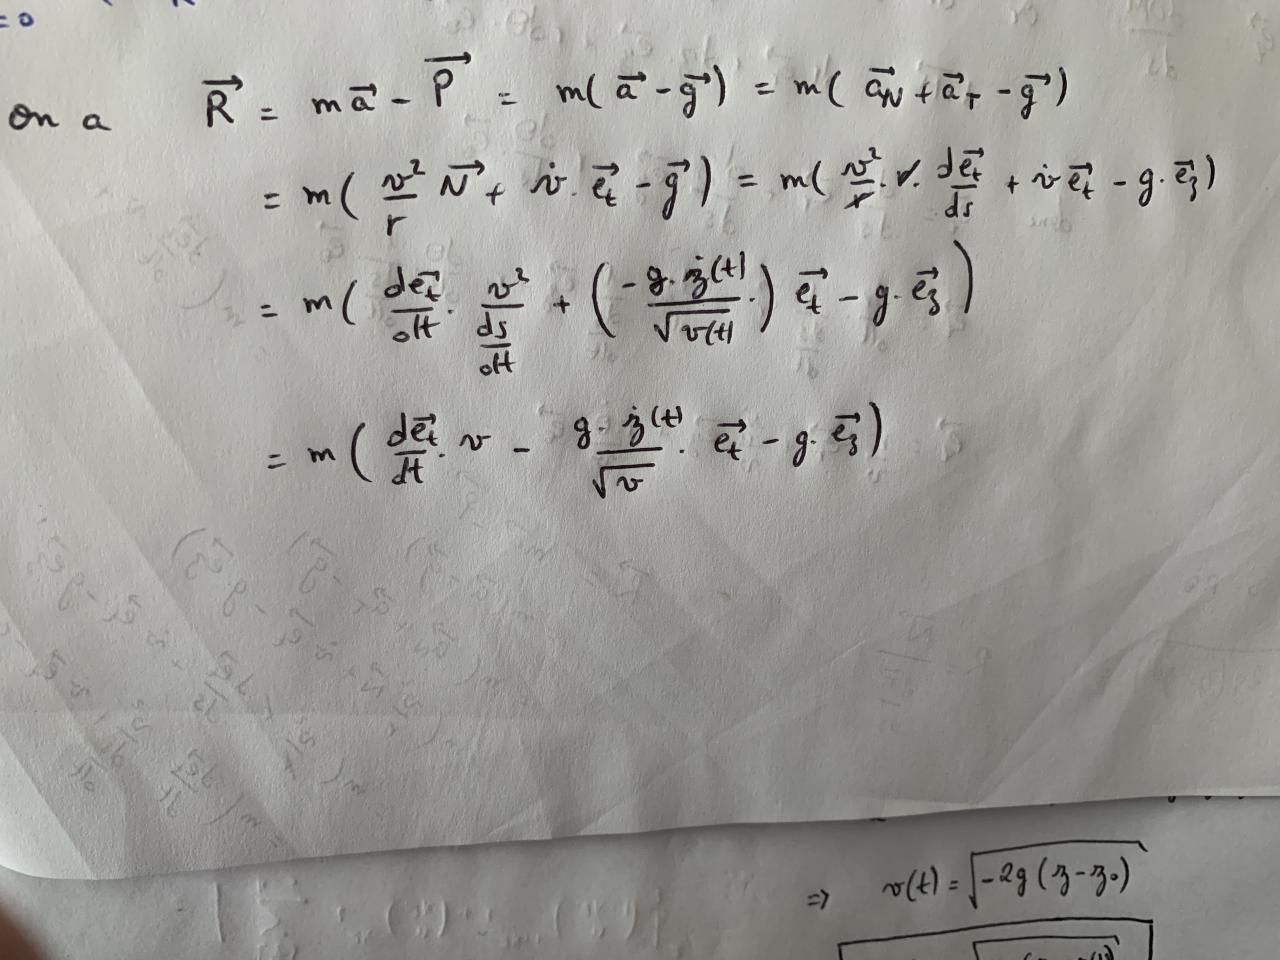 = 0
on a R⃗ = m a⃗ - P⃗ = m( a⃗ - g⃗ ) = m( a⃗N + a⃗T - g⃗ )
= m( v²/r N⃗ + v̇ . e⃗t - g⃗ ) = m( v²/r . r . de⃗t/ds + v̇ e⃗t - g . e⃗z )
= m( de⃗t/dt . v²/(ds/dt) + ( - g . ż(t)/√v(t) . ) e⃗t - g . e⃗z )
= m( de⃗t/dt . v - g . ż(t)/√v . e⃗t - g . e⃗z )
=> v(t) = √-2g (z - z₀)